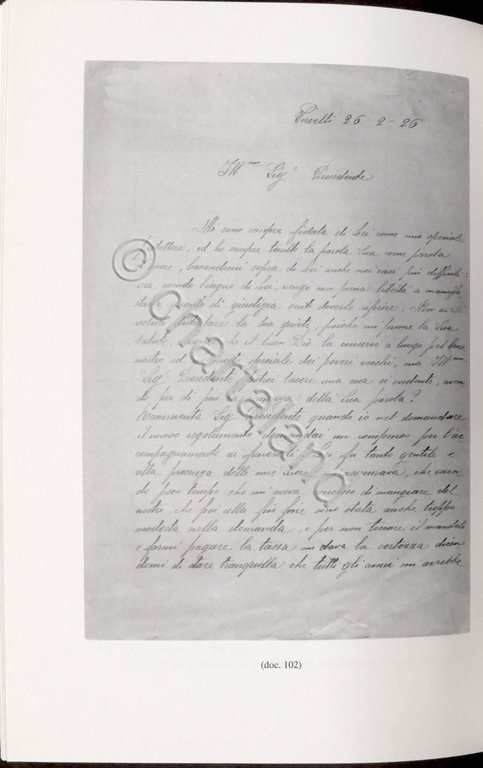 26-2-26
Ill.mo Sig.r Presidente
Mi sono sempre fidata di Lei come mio speciale
ed ho sempre tenuto la parola Sua come parola
basandomi sopra di Lei anche nei casi più difficili
ora avendo bisogno di Lei, vengo con piena libertà a
di giustizia sento doverle riferire. Non avrei
voluto la Sua quiete, poichè mi preme la Sua
salute, che il buon Dio la conservi a lungo pel bene
nostro ed speciale dei poveri vecchi, ma Ill.mo
Sig.r Presidente tacere una cosa sì evidente,
di per di più della Sua parola?
Rammenta Sig. Presidente quando io nel domandare
il nuovo regolamento domandai un compenso per l'ac
compagnamento ai funerali Lei fu tanto gentile e
alla presenza delle mie Suore assicurava, che essen
do poco tempo che mi aveva concesso di mangiare del
nostro, che poi alla fin fine sono stata anche troppo
modesta nella domanda, e per non toccare il mandato
e farmi pagare la tassa mi dava la certezza dicen
domi di stare tranquilla che tutti gli anni mi avrebbe
(doc. 102)
© Chartaland